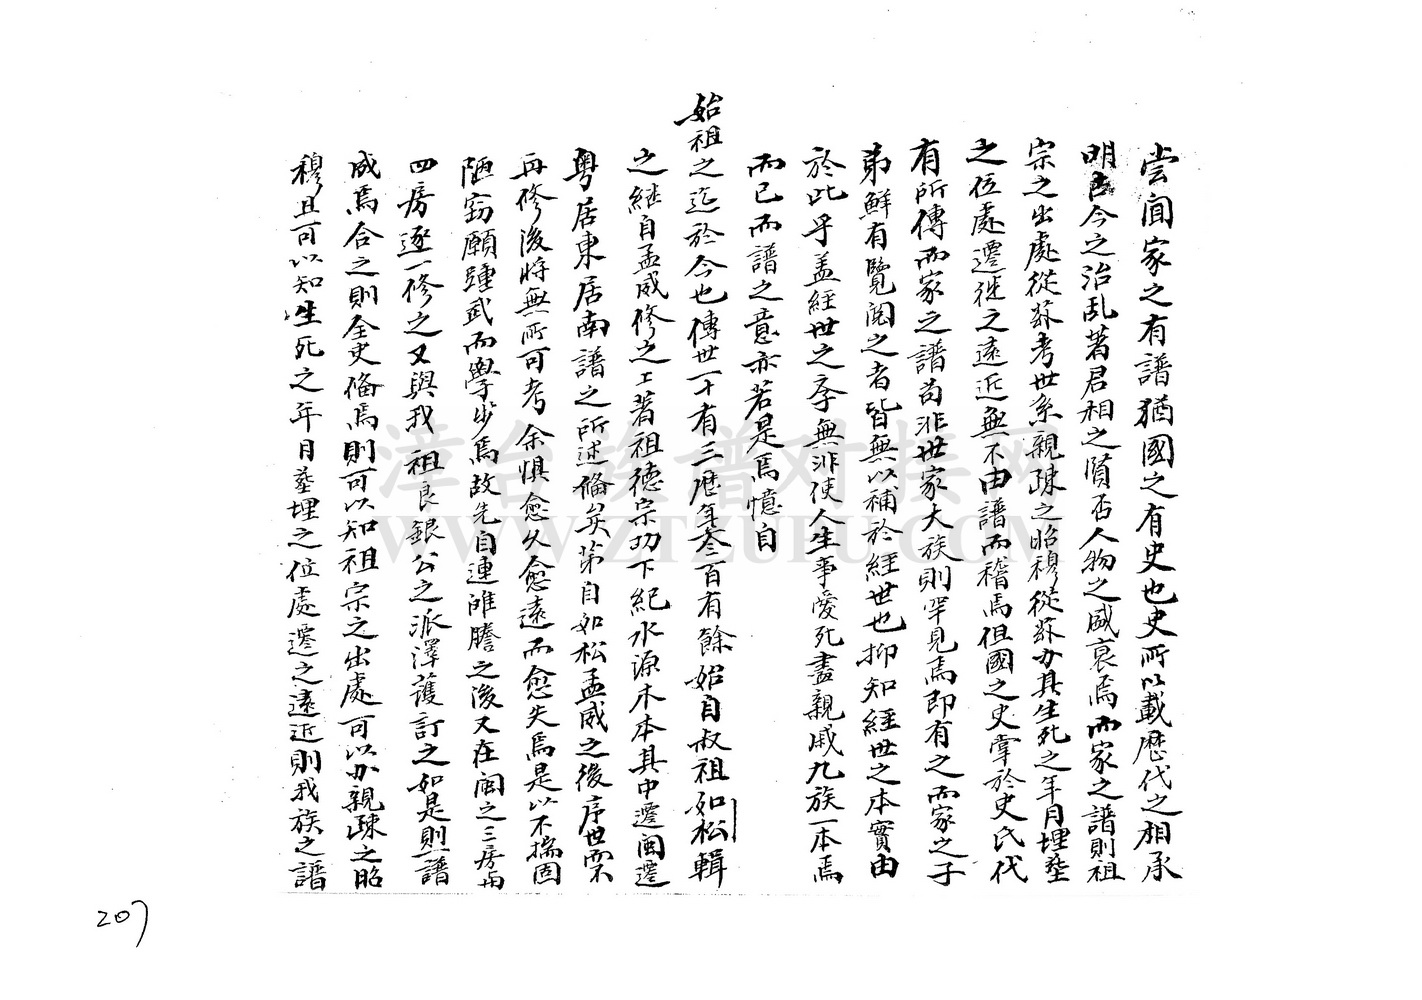 嘗聞家之有譜猶國之有史也史所以載歷代之相承
明古今之治乱著君相之賢否人物之盛衰焉而家之譜則祖
宗之出處從茲考世系親疎之昭穆從茲亦具生死之年月埋塟
之位處遷徙之遠近無不由譜而稽焉但國之史掌於史氏代
有所傳而家之譜苟非世家大族則罕見焉即有之而家之子
弟鮮有覽閱之者皆無以補於經世也抑知經世之本實由
於此乎盖經世之序無非使人生事愛死盡親戚九族一本焉
而已而譜之意亦若是焉憶自
始祖之迄於今也傳世一十有三歷年叁百有餘始自叔祖如松輯
之継自孟威修之上著祖德宗功下紀水源木本其中遷閩遷
粵居東居南譜之所述俻矣第自如松孟威之後序世而不
再修後將無所可考余惧愈久愈遠而愈失焉是以不揣固
陋窃願踵武而學步焉故先自連雎謄之後又在閩之三房与
四房逐一修之又與我 祖良銀公之派澤護訂之如是則一譜
成焉合之則全史俻焉則可以知祖宗之出處可以亦親疎之昭
穆且可以知生死之年月塟埋之位處遷之遠近則我族之譜
207
漳台族谱对接网
WWW.ZTZUPU.COM